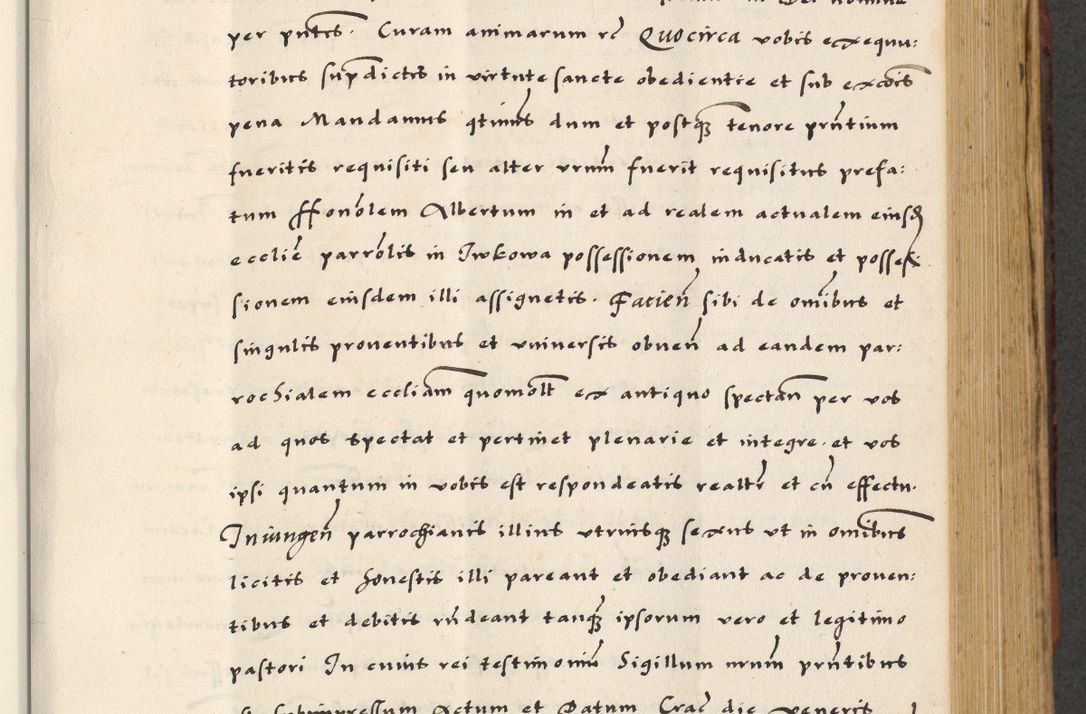 per pntes. Curam animarum rc Quocirca vobis exequu:
toribus supdictis in virtute sancte obedientie et sub excois
pena Mandamus qtinus dum et postq tenore prntium
fueritis requisiti seu alter vrum fuerit requisitus prefa:
tum ffonolem Albertum in et ad realem actualem eiusd
ecclie parrolis in Iwkowa possessionem inducatis et posses
sionem eiusdem illi assignetis. Facien sibi de omibus et
singulis proventibus et universis obuen ad eandem par:
rochialem eccliam quomolt ex antiquo spectan per vos
ad quos spectat et pertinet plenarie et integre. et vos
ipsi quantum in vobis est respondeatis realtr et cu effectu.
Iniungen parrochianis illius utriusq sexus ut in omibus
licitis et honestis illi pareant et obediant ac de proven:
tibus et debitis rndeant tanq ipsorum vero et legitimo
pastori In cuius rei testimonium Sigillum nrum prntibus
subimpressum Actum et Datum Crac die veneris